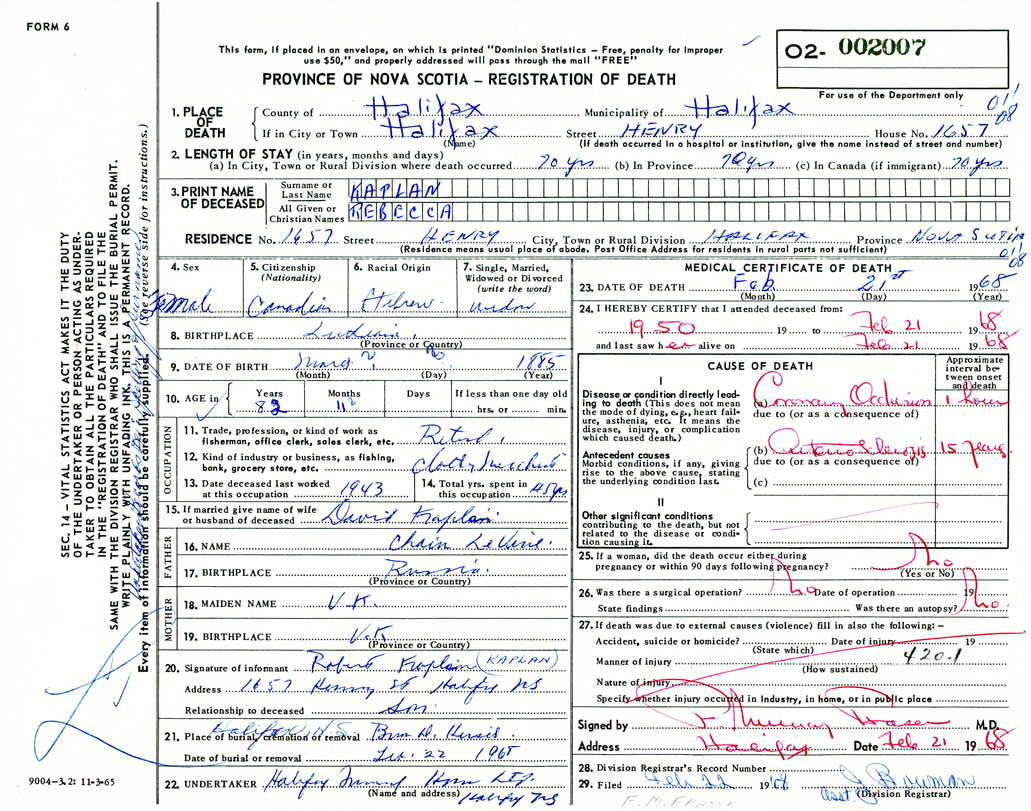 FORM 6
This form, if placed in an envelope, on which is printed "Dominion Statistics – Free, penalty for improper
use $50," and properly addressed will pass through the mail "FREE"
PROVINCE OF NOVA SCOTIA – REGISTRATION OF DEATH
02- 002007
For use of the Department only
011
08
1. PLACE OF DEATH
County of Halifax Municipality of Halifax
If in City or Town Halifax Street HENRY House No. 1657
(Name) (If death occurred in a hospital or institution, give the name instead of street and number)
2. LENGTH OF STAY (in years, months and days)
(a) In City, Town or Rural Division where death occurred 70 yrs (b) In Province 70 yrs (c) In Canada (if immigrant) 70 yrs
3. PRINT NAME OF DECEASED
Surname or Last Name KAPLAN
All Given or Christian Names REBECCA
RESIDENCE No. 1657 Street HENRY City, Town or Rural Division HALIFAX Province NOVA SCOTIA
(Residence means usual place of abode. Post Office Address for residents in rural parts not sufficient)
011
08
SEC. 14 – VITAL STATISTICS ACT MAKES IT THE DUTY
OF THE UNDERTAKER OR PERSON ACTING AS UNDER-
TAKER TO OBTAIN ALL THE PARTICULARS REQUIRED
IN THE "REGISTRATION OF DEATH" AND TO FILE THE
SAME WITH THE DIVISION REGISTRAR WHO SHALL ISSUE THE BURIAL PERMIT.
WRITE PLAINLY WITH UNFADING INK. THIS IS A PERMANENT RECORD.
Every item of information should be carefully supplied. (See reverse side for instructions.)
4. Sex
Female
5. Citizenship
(Nationality)
Canadian
6. Racial Origin
Hebrew
7. Single, Married,
Widowed or Divorced
(write the word)
widow
8. BIRTHPLACE
(Province or Country)
9. DATE OF BIRTH ? ? 1885
(Month) (Day) (Year)
10. AGE in
Years Months Days If less than one day old
82 11 hrs. or min.
OCCUPATION
11. Trade, profession, or kind of work as
fisherman, office clerk, sales clerk, etc. Retired
12. Kind of industry or business, as fishing,
bank, grocery store, etc. Cloth Merchant
13. Date deceased last worked
at this occupation 1943
14. Total yrs. spent in
this occupation 45 yrs
15. If married give name of wife
or husband of deceased David Kaplan
FATHER
16. NAME Chain LeVine
17. BIRTHPLACE Russia
(Province or Country)
MOTHER
18. MAIDEN NAME U.K.
19. BIRTHPLACE U.K
(Province or Country)
20. Signature of informant Robert Kaplan (KAPLAN)
Address 1657 Henry St Halifax NS
Relationship to deceased Son
21. Place of burial, cremation or removal Halifax, N.S.
Date of burial or removal Feb. 22 1968
22. UNDERTAKER Halifax Funeral Home Ltd.
(Name and address) Halifax NS
9004-3.2: 11-3-65
MEDICAL CERTIFICATE OF DEATH
23. DATE OF DEATH Feb. 21st 1968
(Month) (Day) (Year)
24. I HEREBY CERTIFY that I attended deceased from:
1950 19 to Feb 21 1968
and last saw her alive on Feb 21 1968
CAUSE OF DEATH
Approximate
interval be-
tween onset
and death
I
Disease or condition directly lead-
ing to death (This does not mean
the mode of dying, e.g., heart fail-
ure, asthenia, etc. It means the
disease, injury, or complication
which caused death.)
(a) Coronary Occlusion 1 hour
due to (or as a consequence of)
Antecedent causes
Morbid conditions, if any, giving
rise to the above cause, stating
the underlying condition last.
(b) Arteriosclerosis 15 years
due to (or as a consequence of)
(c)
II
Other significant conditions
contributing to the death, but not
related to the disease or condi-
tion causing it.
25. If a woman, did the death occur either during
pregnancy or within 90 days following pregnancy? no
(Yes or No)
26. Was there a surgical operation? no Date of operation 19
State findings Was there an autopsy? no
27. If death was due to external causes (violence) fill in also the following: –
Accident, suicide or homicide? Date of injury 19
(State which)
420.1
Manner of injury
(How sustained)
Nature of injury
Specify whether injury occurred in Industry, in home, or in public place
Signed by M.D.
Address Halifax Date Feb 21 1968
28. Division Registrar's Record Number
29. Filed Feb 22 1968 asst J Bowman
(Division Registrar)
F. M. FRASER